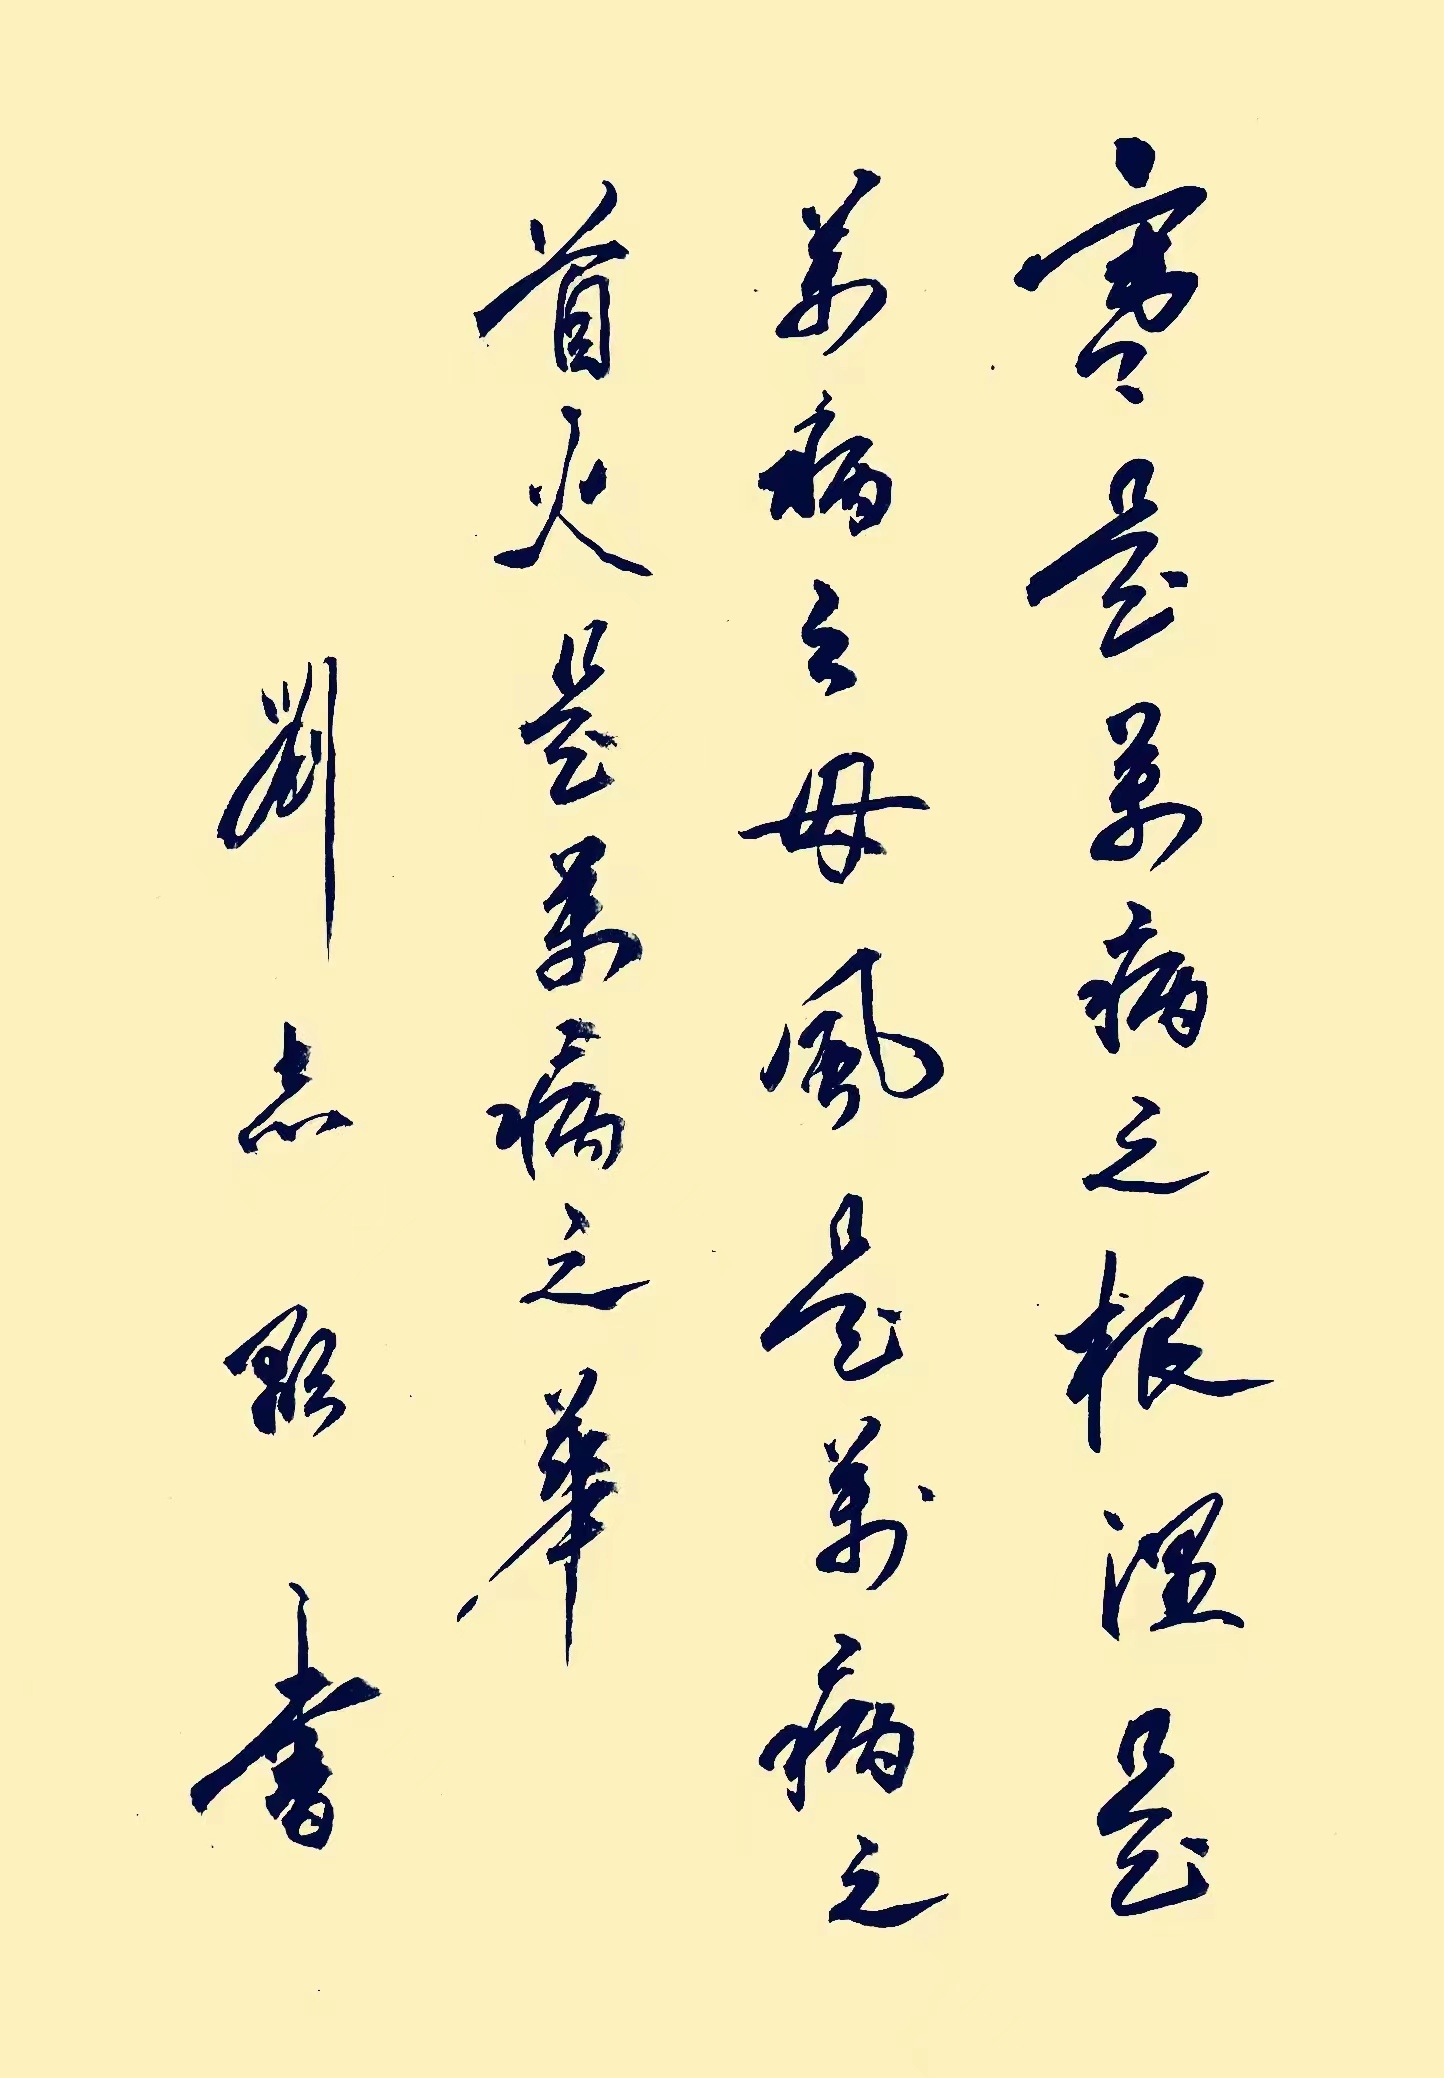 寒是萬病之根濕是
萬病之母風是萬病之
首火是萬病之華
劉志點書